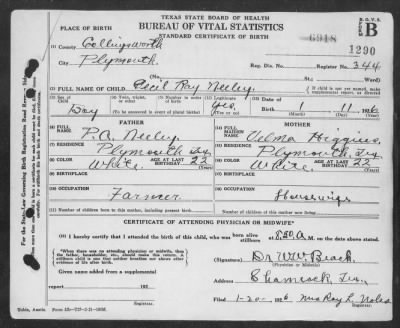 TEXAS STATE BOARD OF HEALTH
BUREAU OF VITAL STATISTICS
STANDARD CERTIFICATE OF BIRTH
B. O. V. S.
B
PLACE OF BIRTH
6918
1290
(1) County Collingsworth
City Plymouth
Reg. Dis. No. Register No. 344
(No. St. Ward)
(2) FULL NAME OF CHILD Cecil Ray Neeley
If child is not yet named, make supplemental report, as directed
(3) Sex of Child Boy
(To be answered in event of plural births)
(6) Legitimate Yes
(7) Date of Birth 1 11 1926
FATHER
MOTHER
(8) FULL NAME P.A. Neeley
FULL MAIDEN NAME Velma Higgins
(9) RESIDENCE Plymouth Tex
RESIDENCE Plymouth Tex
(10) COLOR White AGE AT LAST BIRTHDAY 22
COLOR White AGE AT LAST BIRTHDAY 22
BIRTHPLACE
BIRTHPLACE
OCCUPATION Farmer
OCCUPATION Housewife
Number of children born to this mother, including present birth
Number of children of this mother now living
CERTIFICATE OF ATTENDING PHYSICIAN OR MIDWIFE*
(I) hereby certify that I attended the birth of this child, who was born alive stillborn 8:30 a. M. on the date above stated.
*When there was no attending physician or midwife, then the father, householder, etc., should make this return. A stillborn child is one that neither breathes nor shows other evidence of life after birth.
(Signature) Dr. W W Beach
(Physician or Midwife)
Given name added from a supplemental report 192
Address Shamrock, Tex.
Registrar.
Filed 1-20- 1926 Mrs Ray L.
Registrar.